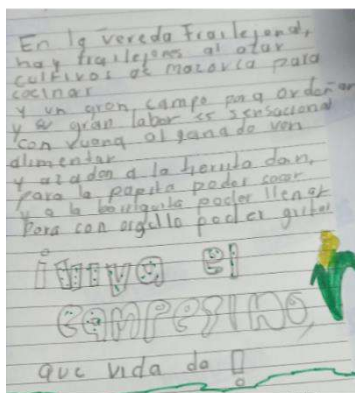 En la vereda Frailejonal,
hay frailejones al otar
cultivos de mazorca para
cocinar
y un gran campo para ordeñar
y su gran labor es sensacional
con yuana al ganado ven
alimentar
y azadon a la tierrita dan,
para la papita poder sacar
y a la barriguita poder llenar
Para con orgullo poder gritar
¡Viva el
CAMPESINO,
que vida da!